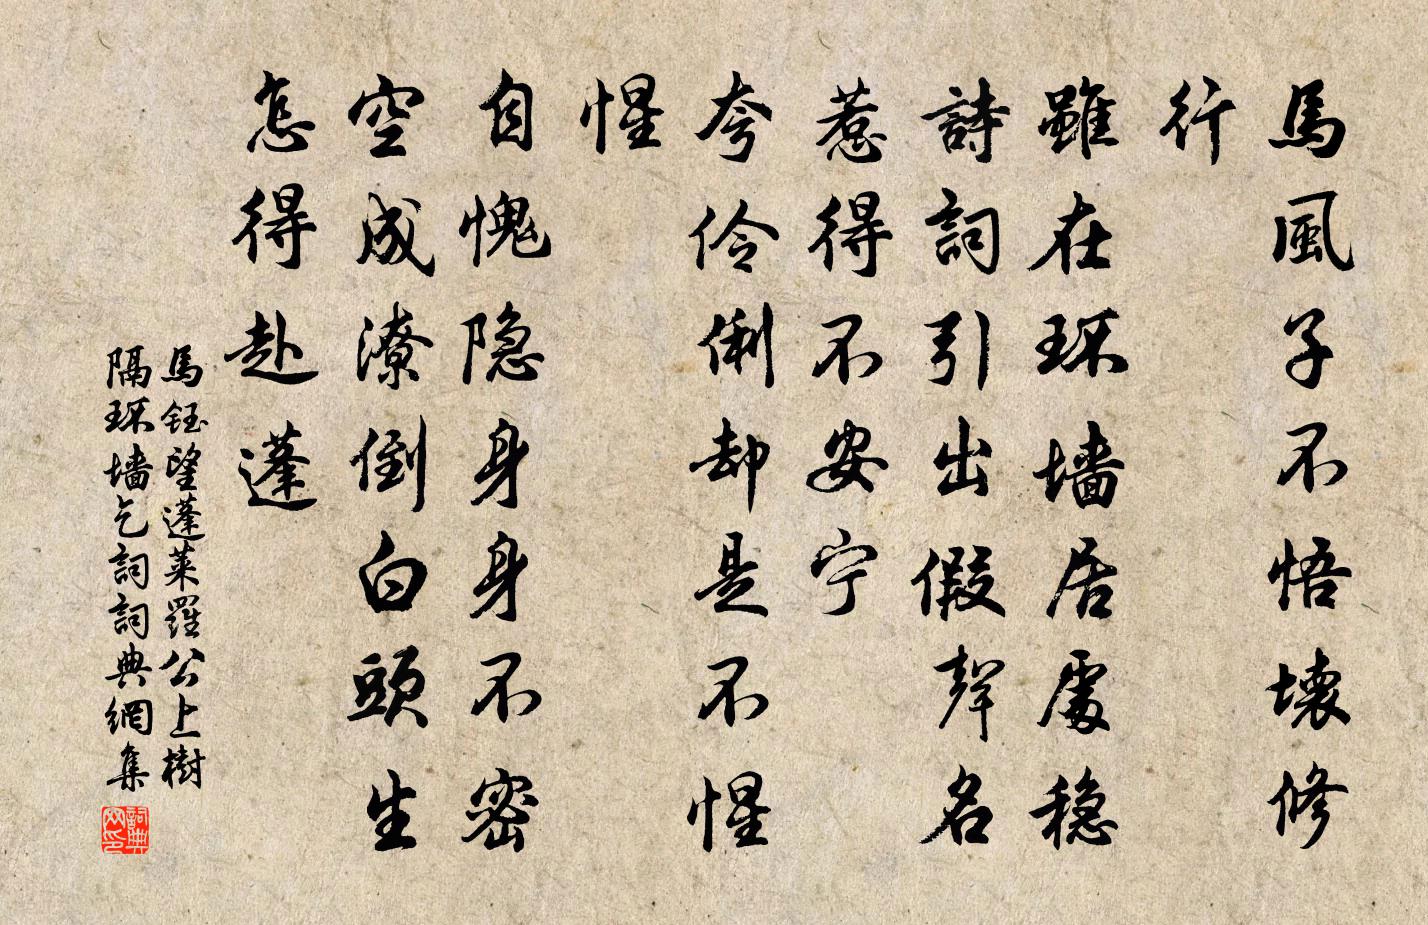 馬風子不悟壞修
行
雖在环墙居處稳
詩詞引出假聲名
惹得不安宁
夸伶俐却是不惺
惺
自愧隐身身不密
空成潦倒白頭生
怎得赴蓬
馬鈺望蓬萊羅公上樹
隔环墙乞詞詞典網集
詞典
网印